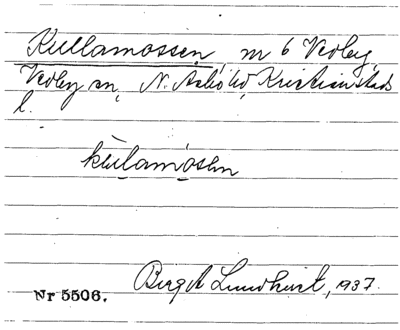 Kullamossen, m 6 Vedby
Vedby sn, N. Åsbo hd, Kristianstads
l.
Nr 5506.
Birgit Lundkvist, 1937.